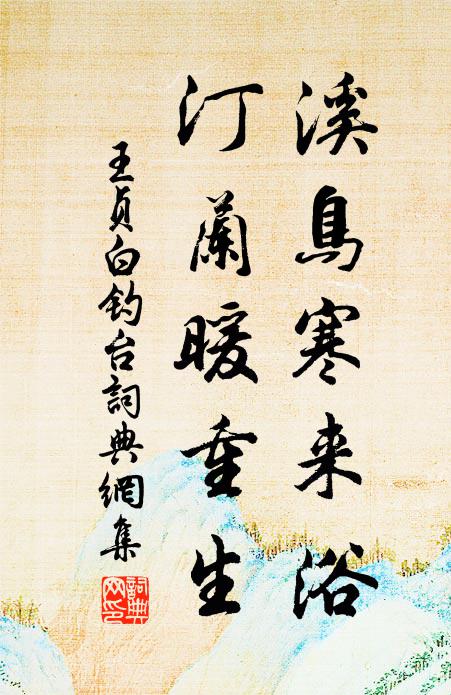 溪鳥寒来浴
汀蘭暖重生
王貞白钓台詞典網集
詞典